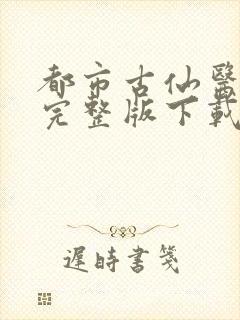 都市古仙醫
完整版下載
遲時書箋